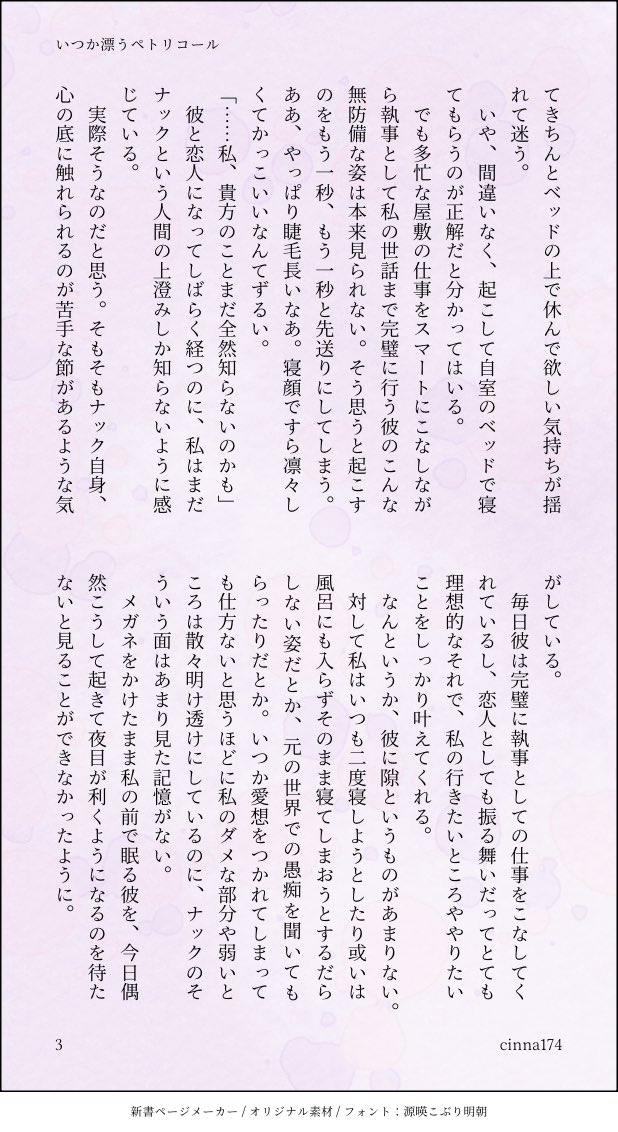 いつか漂うペトリコール
てきちんとベッドの上で休んで欲しい気持ちが揺
れて迷う。
　いや、間違いなく、起こして自室のベッドで寝
てもらうのが正解だと分かってはいる。
　でも多忙な屋敷の仕事をスマートにこなしなが
ら執事として私の世話まで完璧に行う彼のこんな
無防備な姿は本来見られない。そう思うと起こす
のをもう一秒、もう一秒と先送りにしてしまう。
ああ、やっぱり睫毛長いなあ。寝顔ですら凛々し
くてかっこいいなんてずるい。
「……私、貴方のことまだ全然知らないのかも」
　彼と恋人になってしばらく経つのに、私はまだ
ナックという人間の上澄みしか知らないように感
じている。
　実際そうなのだと思う。そもそもナック自身、
心の底に触れられるのが苦手な節があるような気
がしている。
　毎日彼は完璧に執事としての仕事をこなしてく
れているし、恋人としても振る舞いだってとても
理想的なそれで、私の行きたいところややりたい
ことをしっかり叶えてくれる。
　なんというか、彼に隙というものがあまりない。
　対して私はいつも二度寝しようとしたり或いは
風呂にも入らずそのまま寝てしまおうとするだら
しない姿だとか、元の世界での愚痴を聞いても
らったりだとか。いつか愛想をつかれてしまって
も仕方ないと思うほどに私のダメな部分や弱いと
ころは散々明け透けにしているのに、ナックのそ
ういう面はあまり見た記憶がない。
　メガネをかけたまま私の前で眠る彼を、今日偶
然こうして起きて夜目が利くようになるのを待た
ないと見ることができなかったように。
3
cinna174
新書ページメーカー / オリジナル素材 / フォント：源暎こぶり明朝